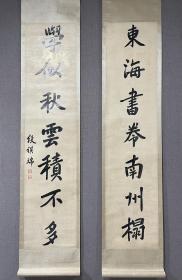 東海書岑南州榻
學似秋雲積不多
段祺瑞